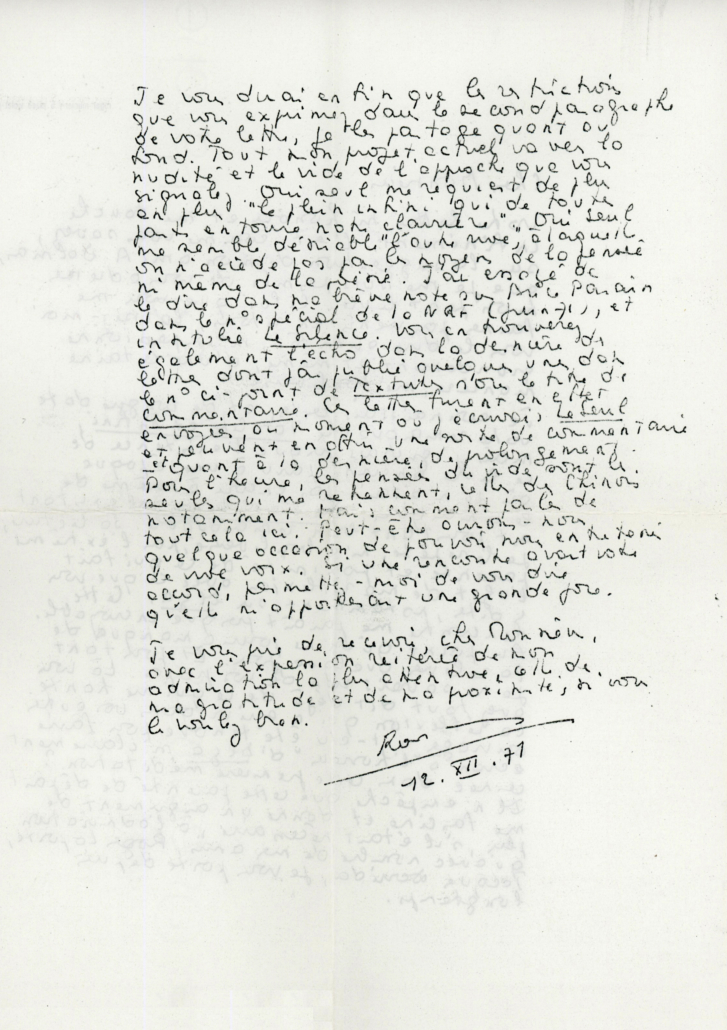 Je vous dirai enfin que les restrictions
que vous exprimez dans le second paragraphe
de votre lettre, je les partage quant au
fond. Tout mon projet actuel va vers la
nudité et le vide de l'approche que vous
signalez. Qui seul me requiert de plus
en plus "le plein infini qui de toutes
parts entoure notre clairière". Qui seul
me semble désirable "l'autre rive", à laquelle
on n'accède pas par le moyen de la pensée
ni même de la poésie. J'ai essayé de
le dire dans ma brève note sur Brice Parain
dans le n° spécial de la NRF (juin 71), et
intitulée Le Silence. Vous en trouverez
également l'écho dans la dernière des
lettres dont j'ai publié quelques unes dans
le n° ci-joint de Textures sous le titre de
Commentaire. Ces lettres furent en effet
envoyées au moment où j'écrivais Le Seul
et peuvent en offrir une sorte de commentaire
et quant à la dernière, de prolongement.
Pour l'heure, les pensées du vide sont les
seules qui me retiennent, celles des Chinois
notamment. Mais comment parler de
tout cela ici. Peut-être aurons-nous
quelque occasion de pouvoir nous entretenir
de vive voix. Si une rencontre avait votre
accord, permettez-moi de vous dire
qu'elle m'apporterait une grande joie.
Je vous prie de recevoir, cher Monsieur,
avec l'expression réitérée de mon
admiration la plus attentive, celle de
ma gratitude et de ma proximité, si vous
le voulez bien.
12. XII. 71